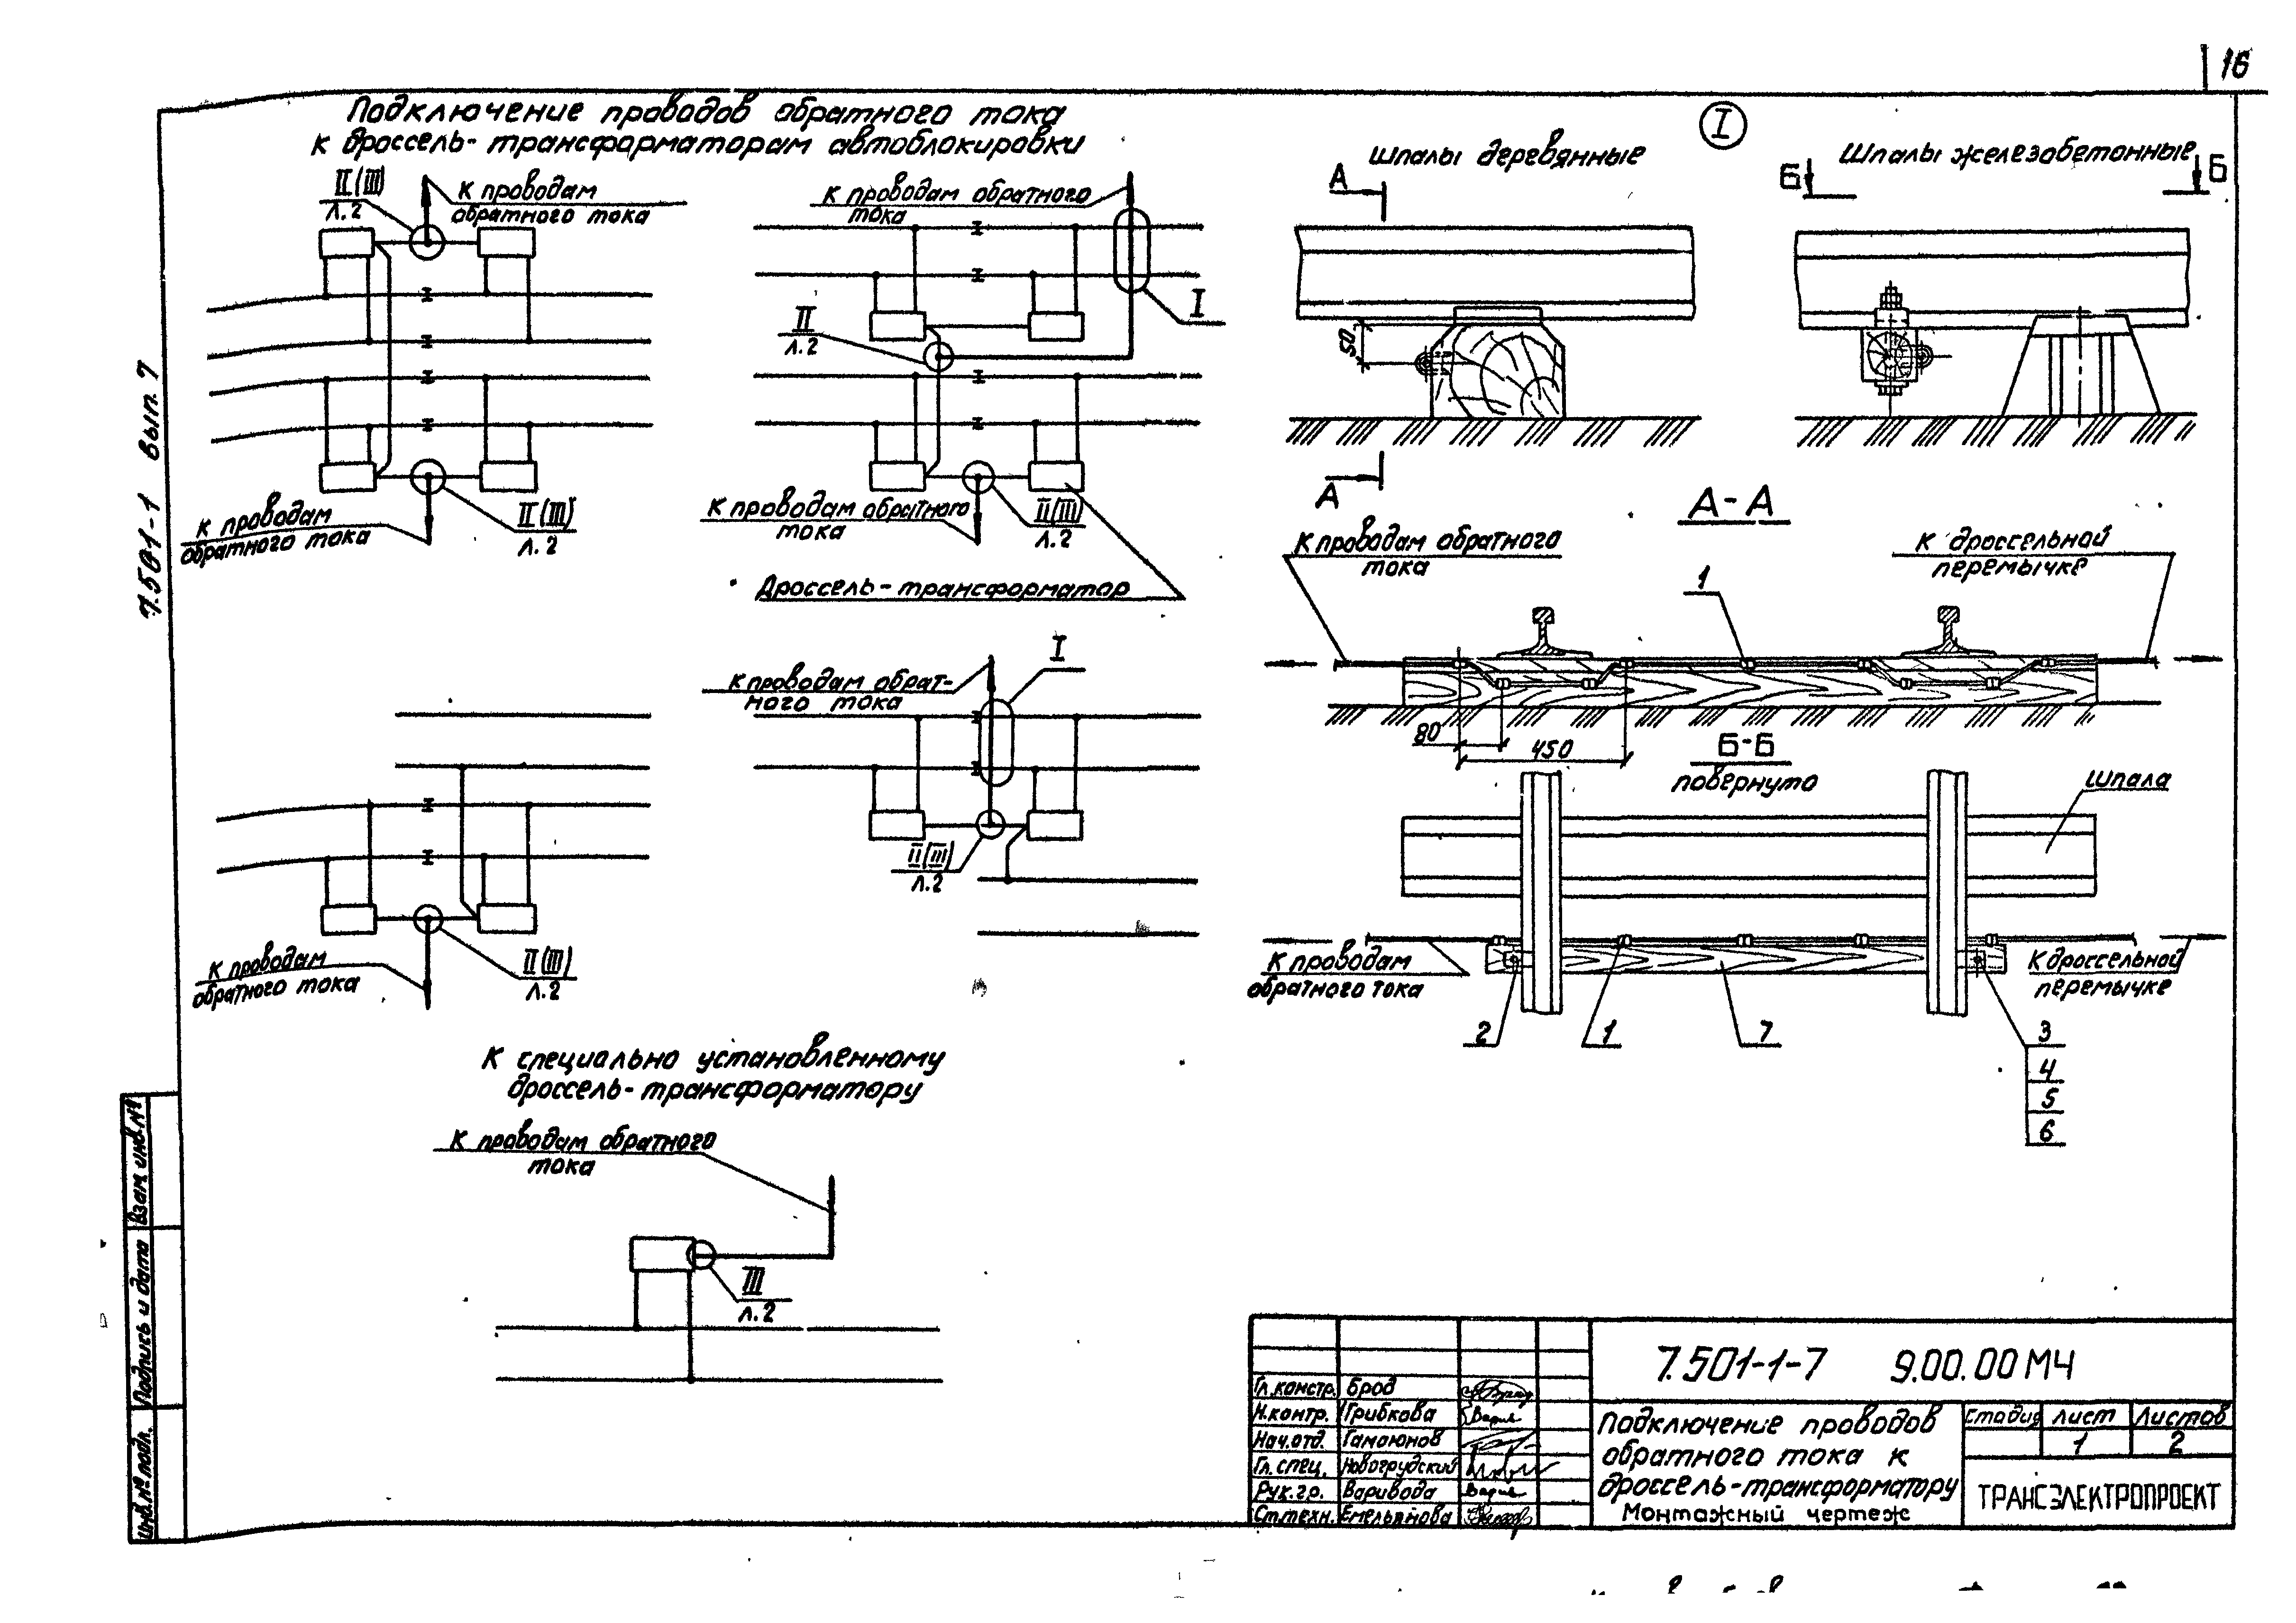 16
Подключение проводов обратного тока
к дроссель-трансформаторам автоблокировки
II(III)
л.2
К проводам
обратного тока
К проводам обратного
тока
I
II
л.2
К проводам
обратного тока
II(III)
л.2
К проводам обратного
тока
II(III)
л.2
Дроссель-трансформатор
К проводам обрат-
ного тока
I
II(III)
л.2
К проводам
обратного тока
II(III)
л.2
К специально установленному
дроссель-трансформатору
К проводам обратного
тока
III
л.2
I
Шпалы деревянные
Шпалы железобетонные
А
Б
Б
50
А
А-А
К проводам обратного
тока
К дроссельной
перемычке
1
80
450
Б-Б
повернуто
шпала
К проводам
обратного тока
К дроссельной
перемычке
2
1
7
3
4
5
6
7.501-1 вып. 7
Взам. инв. №
Подпись и дата
Инв. № подл.
7.501-1-7 9.00.00 МЧ
Гл. констр. Брод
Н.контр. Грибкова
Нач.отд. Гамаюнов
Гл. спец. Новогрудский
Рук.гр. Варивода
Ст.техн. Емельянова
Подключение проводов
обратного тока к
дроссель-трансформатору
Монтажный чертеж
Стадия Лист Листов
1 2
ТРАНСЭЛЕКТРОПРОЕКТ